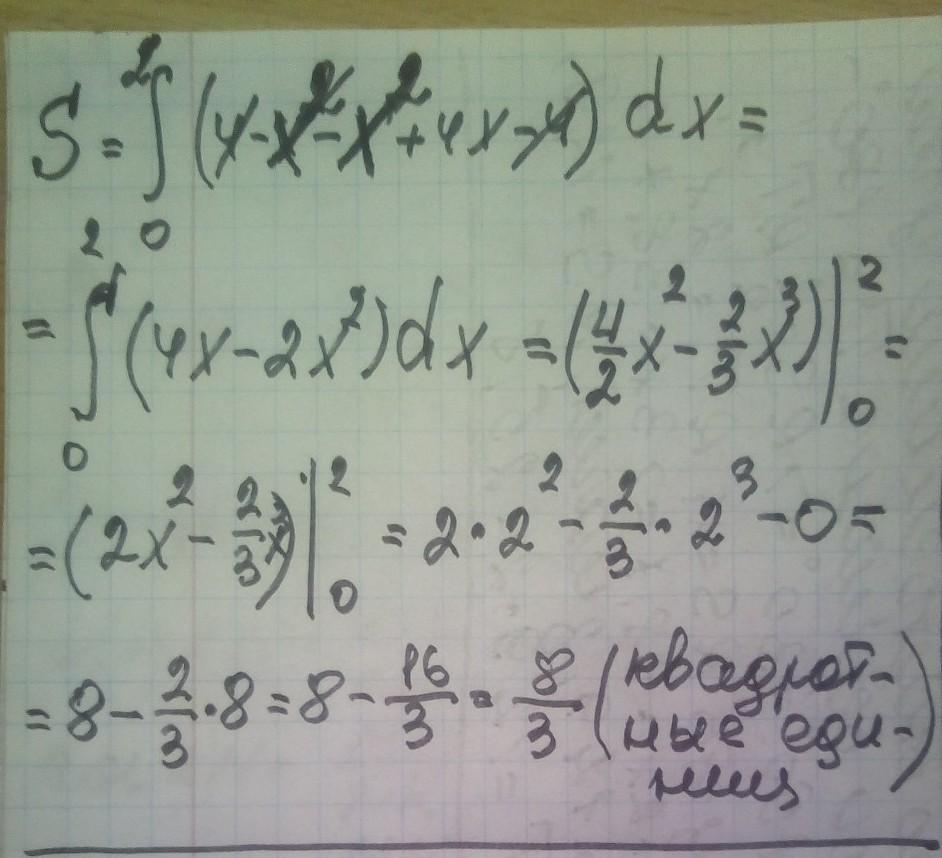 S = ∫₀² (4 - x² - x² + 4x - 4) dx =
= ∫₀² (4x - 2x²) dx = (4/2 x² - 2/3 x³) |₀² =
= (2x² - 2/3 x³) |₀² = 2 · 2² - 2/3 · 2³ - 0 =
= 8 - 2/3 · 8 = 8 - 16/3 = 8/3 (квадрат-
ные еди-
ниц)